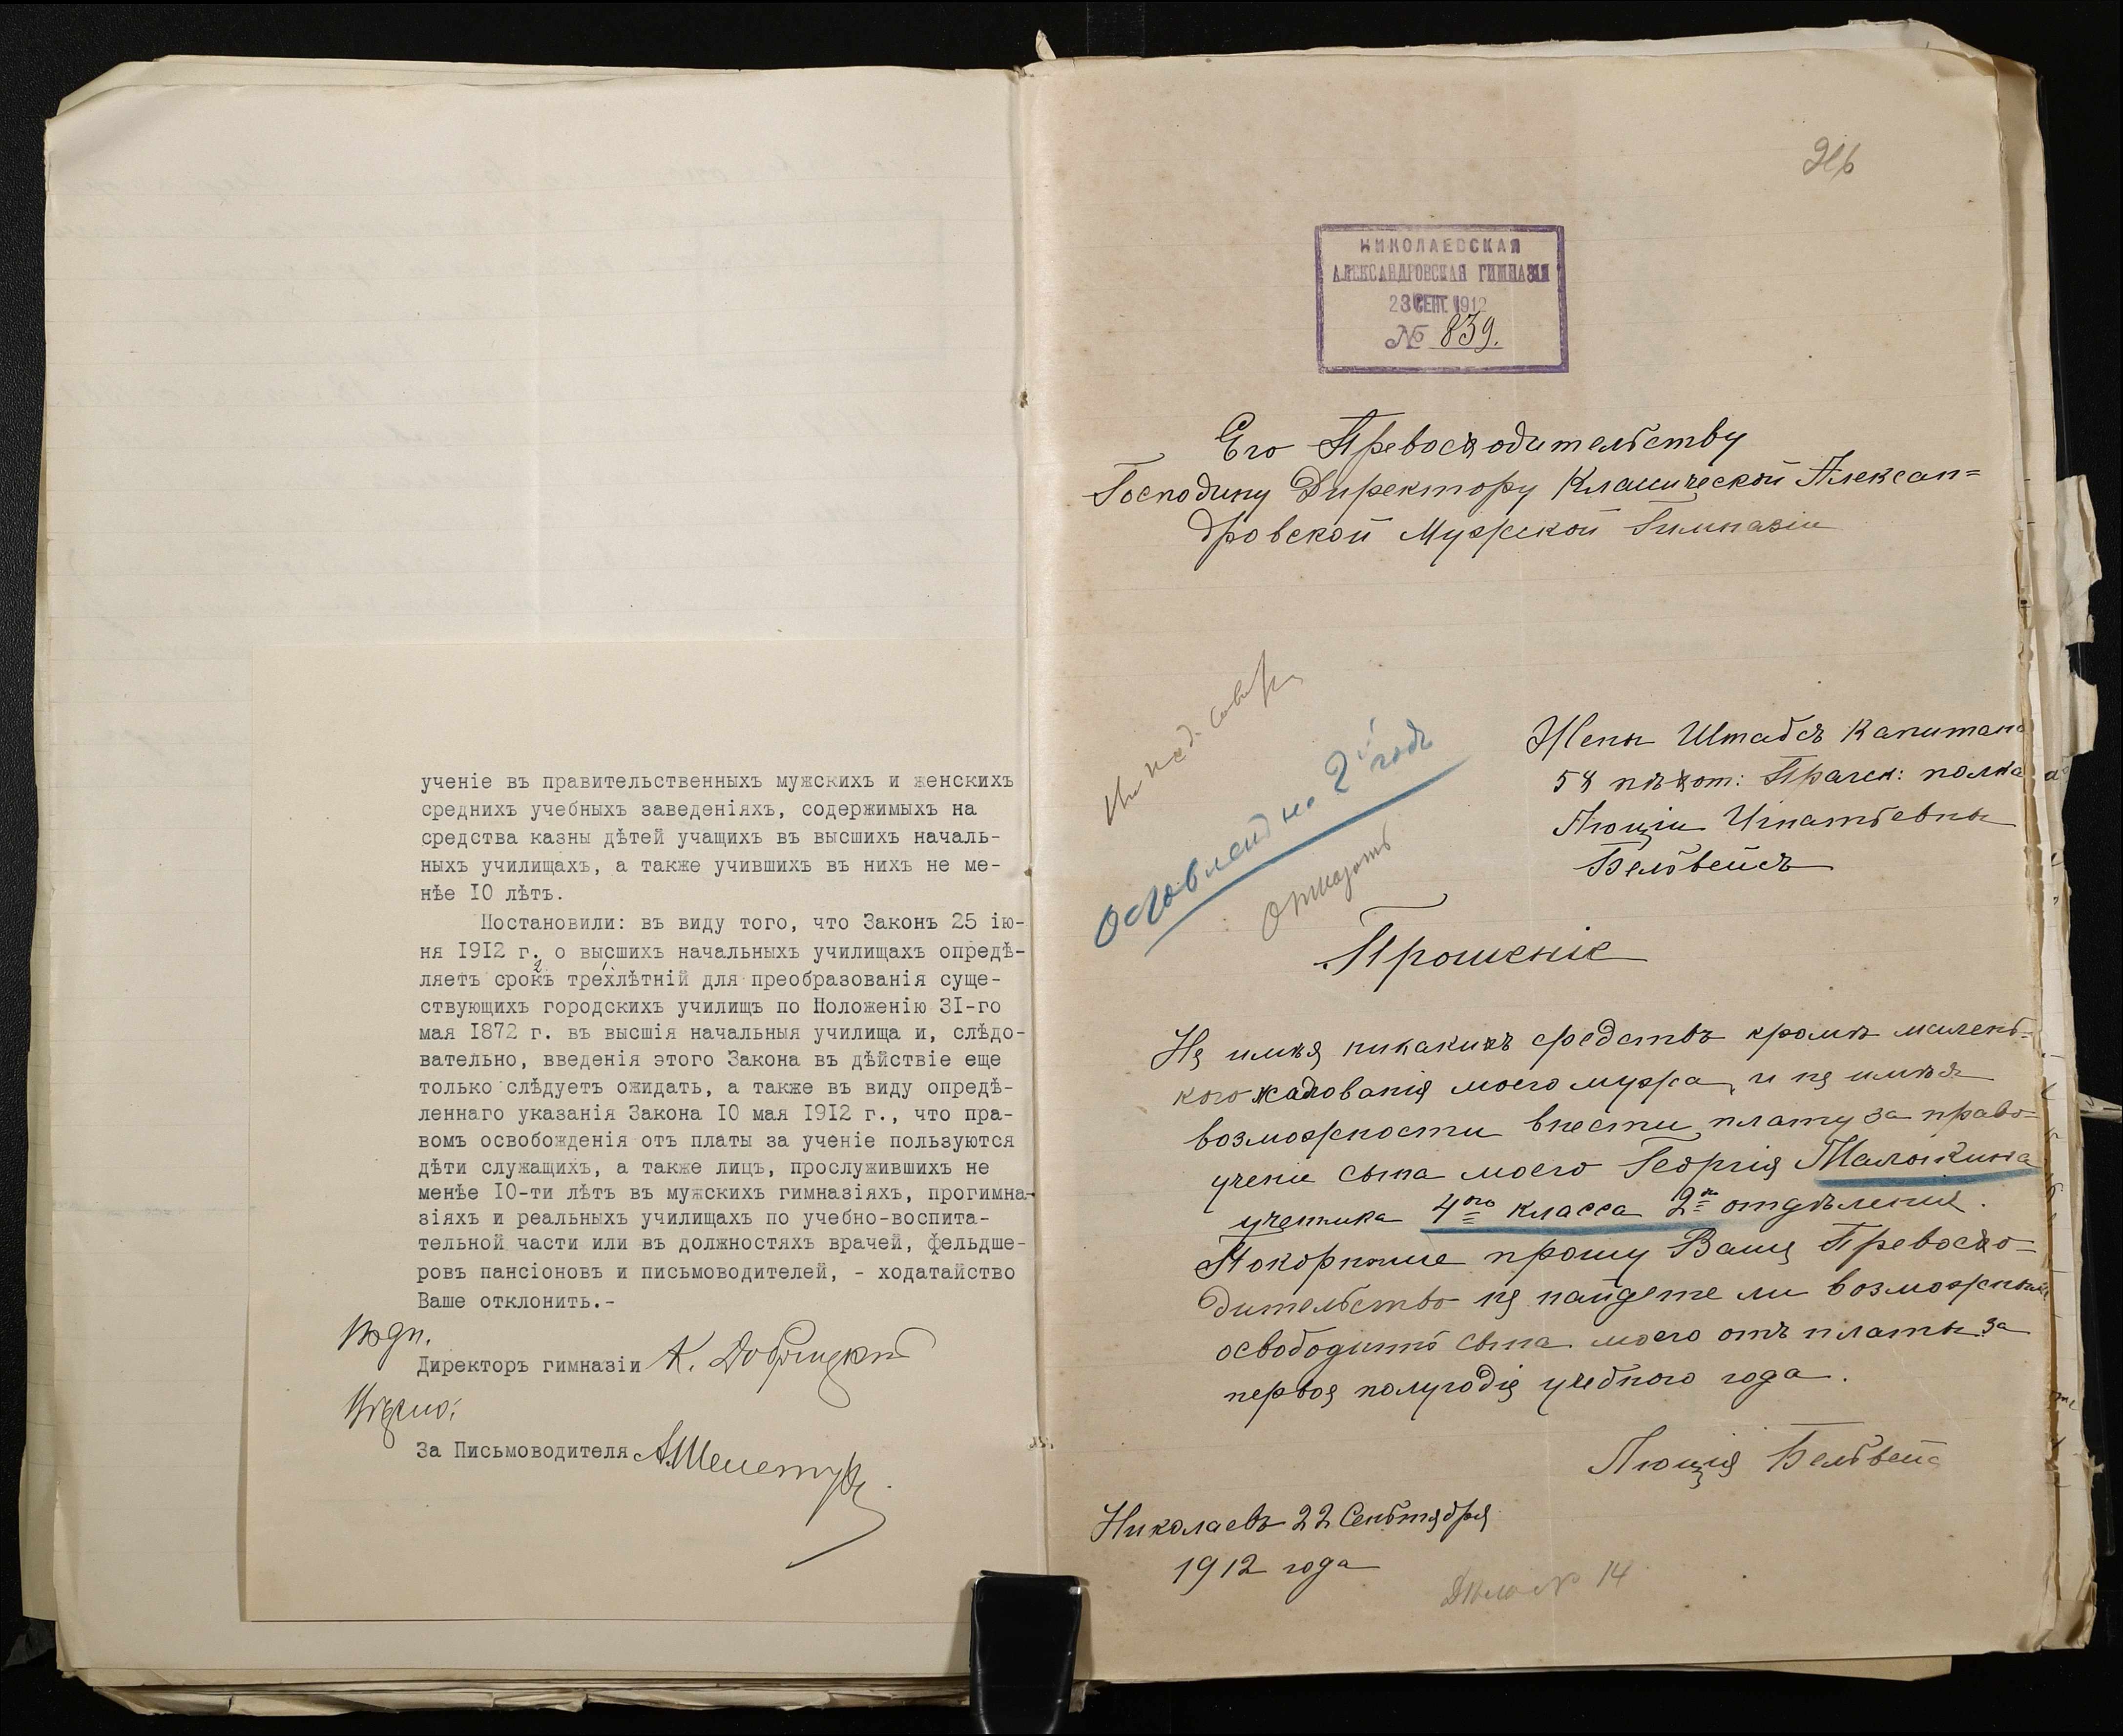 ученіе въ правительственныхъ мужскихъ и женскихъ
среднихъ учебныхъ заведеніяхъ, содержимыхъ на
средства казны дѣтей учащихъ въ высшихъ началь-
ныхъ училищахъ, а также учившихъ въ нихъ не ме-
нѣе IO лѣтъ.
Постановили: въ виду того, что Законъ 25 ію-
ня I9I2 г. о высшихъ начальныхъ училищахъ опредѣ-
ляетъ срокъ трехлѣтній для преобразованія суще-
ствующихъ городскихъ училищъ по Положенію 3I-го
мая I872 г. въ высшія начальныя училища и, слѣдо-
вательно, введенія этого Закона въ дѣйствіе еще
только слѣдуетъ ожидать, а также въ виду опредѣ-
леннаго указанія Закона IO мая I9I2 г., что пра-
вомъ освобожденія отъ платы за ученіе пользуются
дѣти служащихъ, а также лицъ, прослужившихъ не
менѣе IO-ти лѣтъ въ мужскихъ гимназіяхъ, прогимна-
зіяхъ и реальныхъ училищахъ по учебно-воспита-
тельной части или въ должностяхъ врачей, фельдше-
ровъ пансіоновъ и письмоводителей, - ходатайство
Ваше отклонить.-
Подп.
Директоръ гимназіи К.
Вѣрно:
За Письмоводителя
НИКОЛАЕВСКАЯ
АЛЕКСАНДРОВСКАЯ ГИМНАЗІЯ
23 СЕНТ. 1912
№ 839.
Его Превосходительству
Господину Директору Классической Алексан=
дровской Мужской Гимназіи
Жены Штабсъ Капитана
58 пѣхот: Прагск: полка
Люціи Игнатьевны
Бельвейсъ
Оставленъ на 2й годъ
Отказать
Прошеніе
Не имѣя никакихъ средствъ кромѣ малень=
кого жалованія моего мужа, и не имѣя
возможности внести плату за право=
ученіе сына моего Георгія Малыкина
ученика 4го класса 2го отдѣленія.
Покорнѣше прошу Ваше Превосхо=
дительство не найдете ли возможнымъ
освободить сына моего отъ платы за
первое полугодіе учебного года.
Люція Бельвейс
Николаевъ 22 Сентября
1912 года
Дѣло № 14